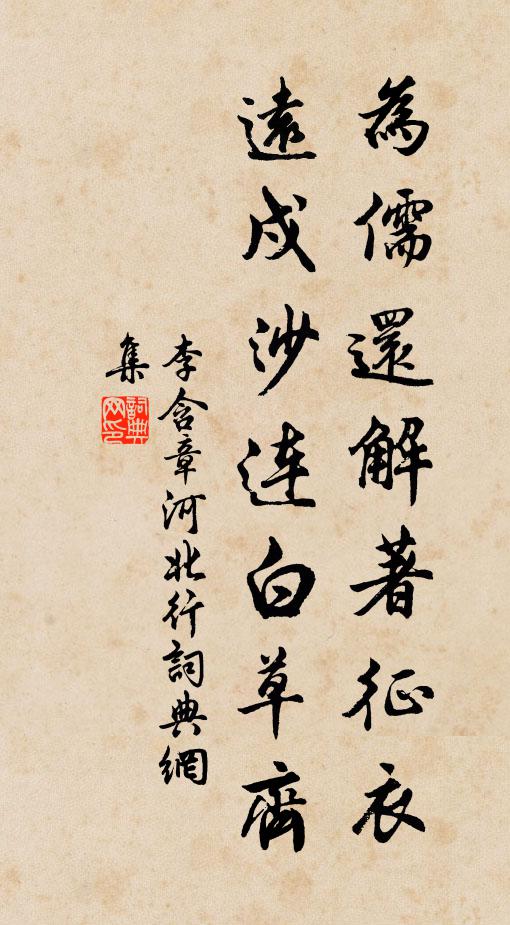 為儒還解著征衣
遠戍沙連白草齊
李含章河北行詞典網
集
詞典网印